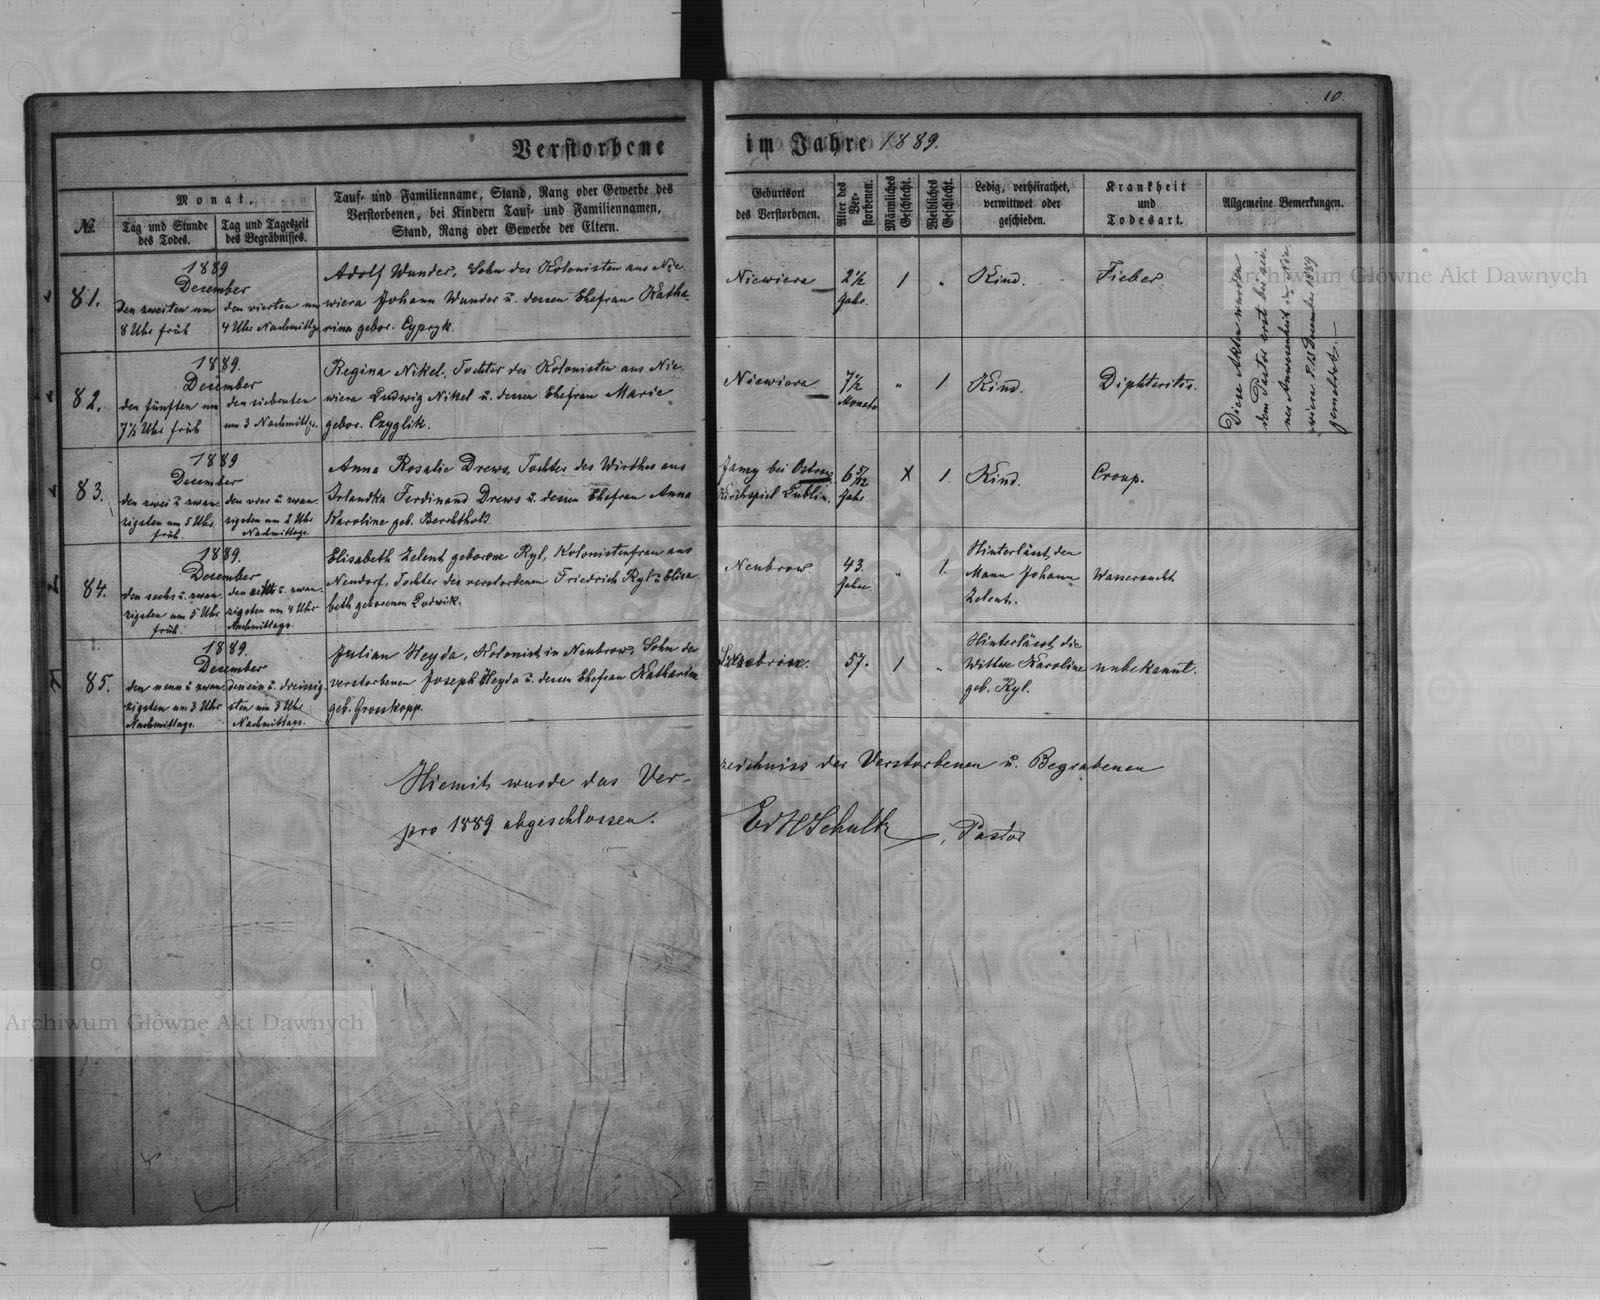 10.
Verstorbene im Jahre 1889.
№.
Monat,
Tag und Stunde
des Todes.
Tag und Tageszeit
des Begräbnisses.
Tauf- und Familienname, Stand, Rang oder Gewerbe des
Verstorbenen, bei Kindern Tauf- und Familiennamen,
Stand, Rang oder Gewerbe der Eltern.
Geburtsort
des Verstorbenen.
Alter des
Ver-
storbenen.
Männliches
Geschlecht.
Weibliches
Geschlecht.
Ledig, verheirathet,
verwittwet oder
geschieden.
Krankheit
und
Todesart.
Allgemeine Bemerkungen.
81.
1889
December
den zweiten um
8 Uhr früh
den vierten um
4 Uhr Nachmittgs.
Adolf Wunder, Sohn des Kolonisten aus Nie-
wiera Johann Wunder u. dessen Ehefrau Katha-
rina gebor. Cypryk.
Niewiera
2½
Jahr.
1
"
Kind.
Fieber.
Diese Akten wurden
dem Pastor erst bei sei-
ner Anwesenheit in Nie-
wiera d. 15 December 1889
gemeldet.
82.
1889.
December
den fünften um
7½ Uhr früh
den siebenten
um 3 Nachmittgs.
Regina Nikel, Tochter des Kolonisten aus Nie-
wiera Ludwig Nikel u. dessen Ehefrau Marie
gebor. Czyglik.
Niewiera
7½
Monate
"
1
Kind.
Diphteritis.
83.
1889
December
den zwei u. zwan-
zigsten um 5 Uhr
früh.
den vier u. zwan-
zigsten um 2 Uhr
Nachmittags.
Anna Rosalie Drews, Tochter des Wirthes aus
Irlandka Ferdinand Drews u. dessen Ehefrau Anna
Karoline geb. Berchthold
Jamy bei
Kirchspiel Lublin.
6 5/12
Jahr.
X
1.
Kind.
Croup.
84.
1889.
December
den sechs u. zwan-
zigsten um 5 Uhr
früh.
den acht u. zwan-
zigsten um 4 Uhr
Nachmittags.
Elisabeth Zelent geborene Ryl, Kolonistenfrau aus
Neudorf, Tochter des verstorbenen Friedrich Ryl u. Elisa-
beth geborenen Ludwik.
Neubrow
43.
Jahre
"
1.
Hinterlässt den
Mann Johann
Zelent.
Wassersucht
85.
1889.
December
den neun u. zwan-
zigsten um 3 Uhr
Nachmittags.
den ein u. dreissig-
sten um 3 Uhr
Nachmittags.
Julian Heyda, Kolonist in Neubrow, Sohn des
verstorbenen Joseph Heyda u. dessen Ehefrau Katharine
geb. Grosskopp.
57.
1
"
Hinterlässt die
Wittwe Karoline
geb. Ryl.
unbekannt.
Hiemit wurde das Ver-
zeichniss der Verstorbenen u. Begrabenen
pro 1889 abgeschlossen.
Schultz, Pastor
Archiwum Główne Akt Dawnych
Archiwum Główne Akt Dawnych